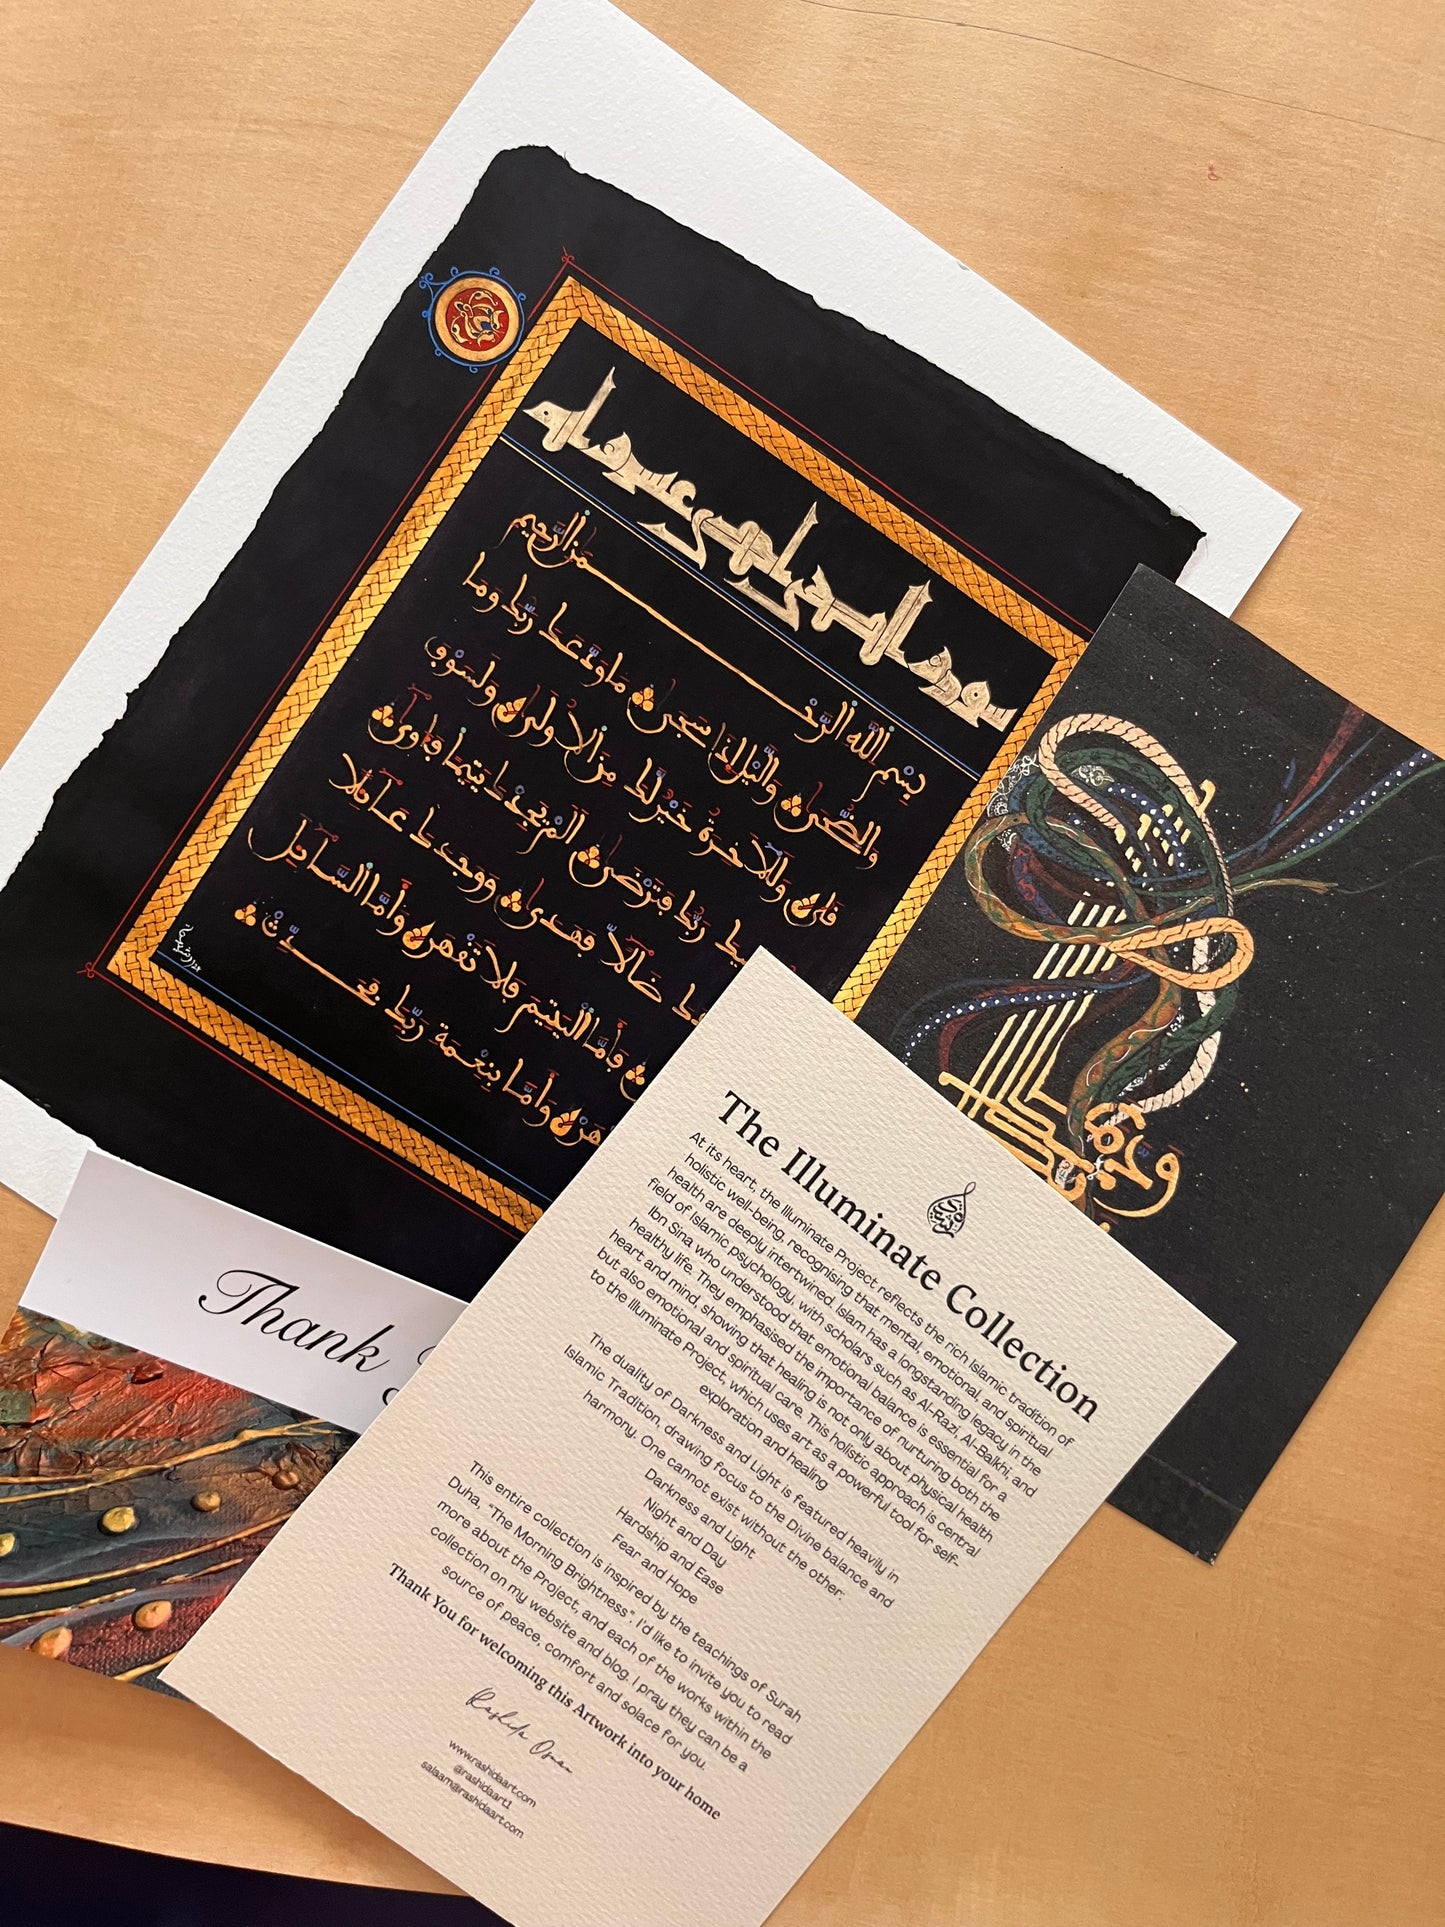 بِسْمِ اللَّهِ الرَّحْمَٰنِ الرَّحِيمِ
وَالضُّحَىٰ وَاللَّيْلِ إِذَا سَجَىٰ مَا وَدَّعَكَ رَبُّكَ وَمَا
قَلَىٰ وَلَلْآخِرَةُ خَيْرٌ لَّكَ مِنَ الْأُولَىٰ وَلَسَوْفَ
رَبُّكَ فَتَرْضَىٰ أَلَمْ يَجِدْكَ يَتِيمًا فَآوَىٰ
ضَالًّا فَهَدَىٰ وَوَجَدَكَ عَائِلًا
فَأَمَّا الْيَتِيمَ فَلَا تَقْهَرْ وَأَمَّا السَّائِلَ
وَأَمَّا بِنِعْمَةِ رَبِّكَ فَحَدِّثْ
Thank
The Illuminate Collection
At its heart, the Illuminate Project reflects the rich Islamic tradition of
holistic well-being, recognising that mental, emotional, and spiritual
health are deeply intertwined. Islam has a longstanding legacy in the
field of Islamic psychology, with scholars such as Al-Razi, Al-Balkhi, and
Ibn Sina who understood that emotional balance is essential for a
healthy life. They emphasised the importance of nurturing both the
heart and mind, showing that healing is not only about physical health
but also emotional and spiritual care. This holistic approach is central
to the Illuminate Project, which uses art as a powerful tool for self-
exploration and healing
The duality of Darkness and Light is featured heavily in
Islamic Tradition, drawing focus to the Divine balance and
harmony. One cannot exist without the other:
Darkness and Light
Night and Day
Hardship and Ease
Fear and Hope
This entire collection is inspired by the teachings of Surah
Duha, "The Morning Brightness". I'd like to invite you to read
more about the Project, and each of the works within the
collection on my website and blog. I pray they can be a
source of peace, comfort and solace for you.
Thank You for welcoming this Artwork into your home
www.rashidaart.com
@rashidaart1
salaam@rashidaart.com